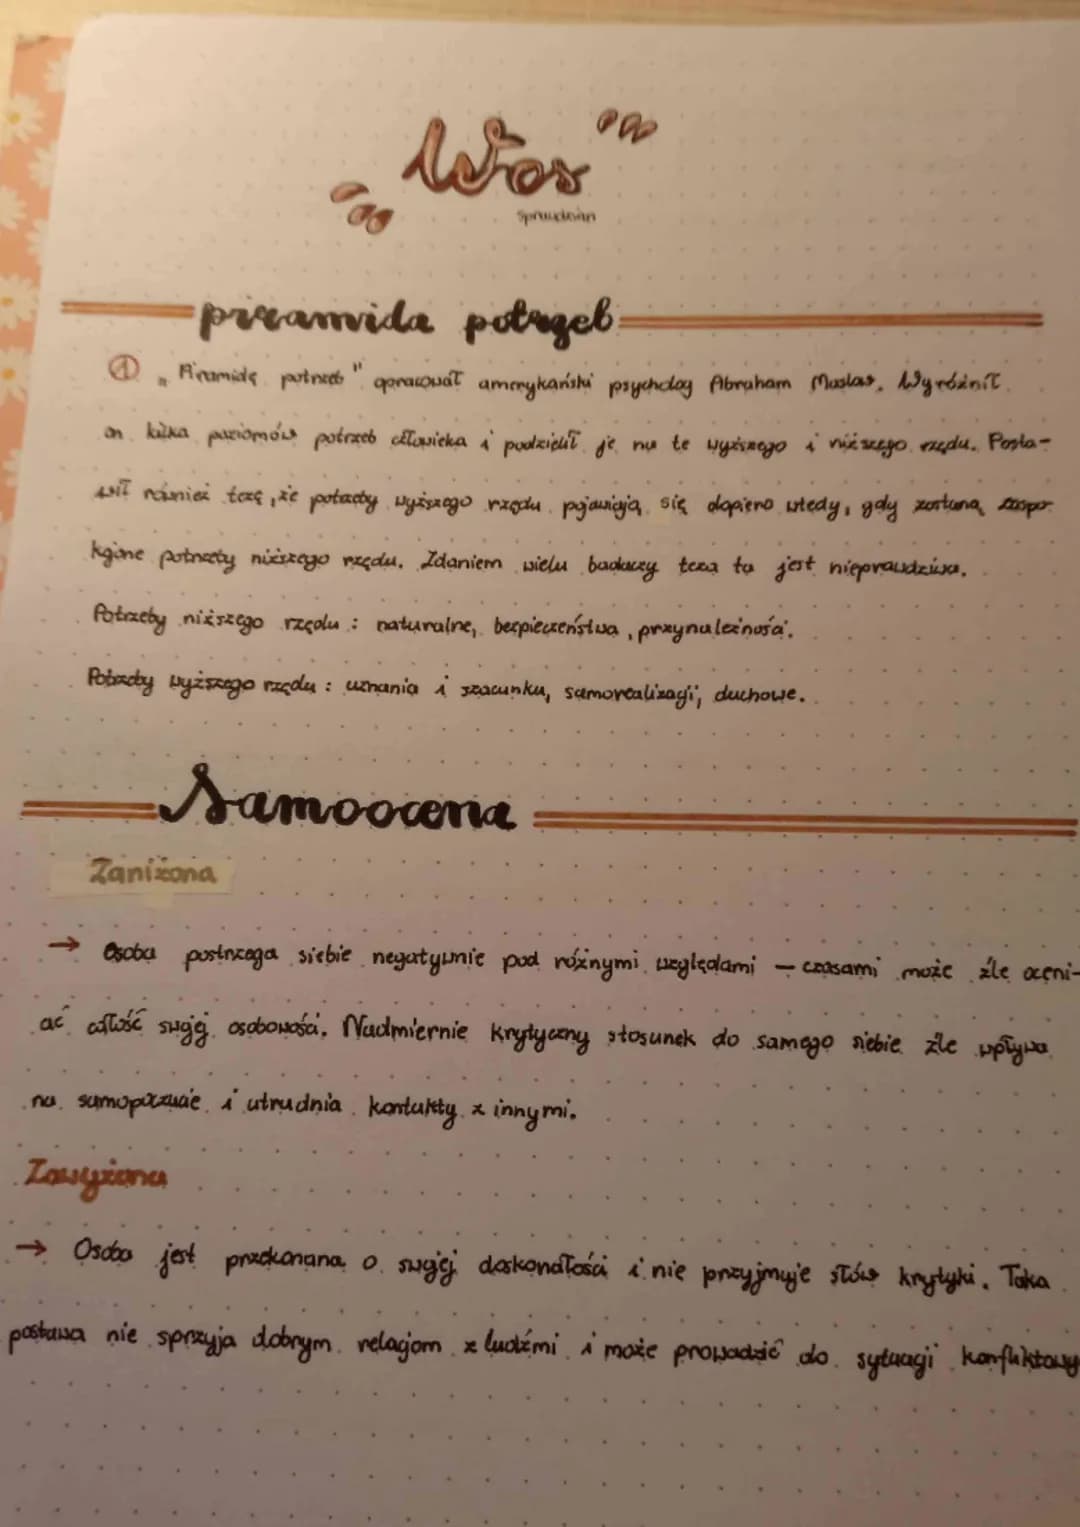 Wos
sprawdzian
piramida potrzeb
① „Piramidę potrzeb" opracował amerykański psycholog Abraham Maslow. Wyróżnił
on kilka poziomów potrzeb człowieka i podzielił je na te wyższego i niższego rzędu. Posta-
wił również tezę, że potrzeby wyższego rzędu pojawiają się dopiero wtedy, gdy zostaną zaspo-
kojone potrzeby niższego rzędu. Zdaniem wielu badaczy teza ta jest nieprawdziwa.
Potrzeby niższego rzędu : naturalne, bezpieczeństwa, przynależności.
Potrzeby wyższego rzędu : uznania i szacunku, samorealizacji, duchowe.
Samoocena
Zaniżona
→ Osoba postrzega siebie negatywnie pod różnymi względami – czasami może źle oceni-
ać całość swojej osobowości. Nadmiernie krytyczny stosunek do samego siebie źle wpływa
na samopoczucie i utrudnia kontakty z innymi.
Zawyżona
→ Osoba jest przekonana o swojej doskonałości i nie przyjmuje słów krytyki. Taka
postawa nie sprzyja dobrym relacjom z ludźmi i może prowadzić do sytuacji konfliktowy